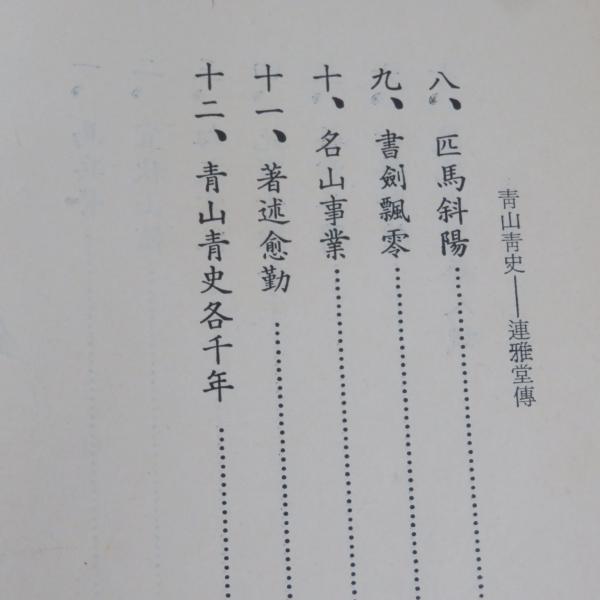 青山青史——連雅堂傳
八、匹馬斜陽
九、書劍飄零
十、名山事業
十一、著述愈勤
十二、青山青史各千年